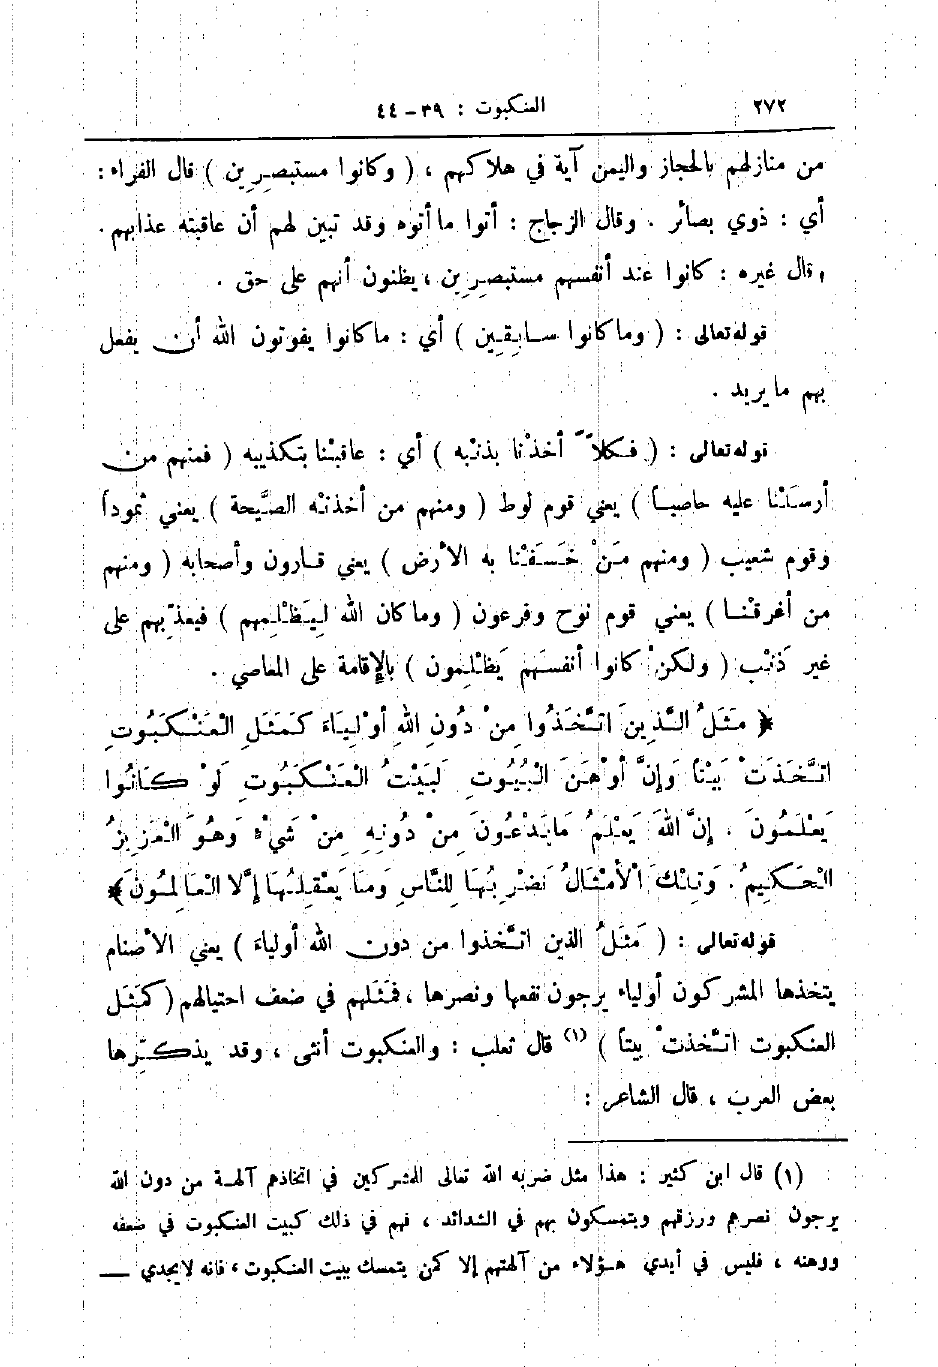 ٢٧٢ العنكبوت : ٣٩ – ٤٤
من منازلهم بالحجاز واليمن آية في هلاكهم ، ( وكانوا مستبصرين ) قال الفراء :
أي : ذوي بصائر . وقال الزجاج : أتوا ما أتوه وقد تبين لهم أن عاقبته عذابهم .
وقال غيره : كانوا عند أنفسهم مستبصرين ، يظنون أنهم على حق .
قوله تعالى : ( وما كانوا سابِقِين ) أي : ما كانوا يفوتون الله أن يفعل
بهم ما يريد .
قوله تعالى : ( فكلاًّ أخذْنا بذنْبه ) أي : عاقبْنا بتكذيبه ( فمنهم من
أرسَلْنا عليه حاصباً ) يعني قوم لوط ( ومنهم من أخذتْه الصَّيحة ) يعني ثموداً
وقوم شعيب ( ومنهم مَنْ خَسَفْنا به الأرض ) يعني قارون وأصحابه ( ومنهم
من أغرقْنا ) يعني قوم نوح وفرعون ( وما كان الله لِيَظْلِمهم ) فيعذّبهم على
غير ذَنْب ( ولكنْ كانوا أنفسَهم يَظْلِمون ) بالإقامة على المعاصي .
﴿ مَثَلُ الَّذِينَ اتَّخَذُوا مِنْ دُونِ اللهِ أَوْلِيَاءَ كَمَثَلِ الْعَنْكَبُوتِ
اتَّخَذَتْ بَيْتاً وَإِنَّ أَوْهَنَ الْبُيُوتِ لَبَيْتُ الْعَنْكَبُوتِ لَوْ كَانُوا
يَعْلَمُونَ . إِنَّ اللهَ يَعْلَمُ مَا يَدْعُونَ مِنْ دُونِهِ مِنْ شَيْءٍ وَهُوَ الْعَزِيزُ
الْحَكِيمُ . وَتِلْكَ الْأَمْثَالُ نَضْرِبُهَا لِلنَّاسِ وَمَا يَعْقِلُهَا إِلَّا الْعَالِمُونَ ﴾
قوله تعالى : ( مَثَلُ الذين اتَّخذوا من دون الله أولياءَ ) يعني الأصنام
يتخذها المشركون أولياء يرجون نفعها ونصرها ، فمَثَلهم في ضعف احتيالهم ( كمَثَل
العنكبوت اتَّخذتْ بيتاً ) (١) قال ثعلب : والعنكبوت أنثى ، وقد يذكِّرها
بعض العرب ، قال الشاعر :
(١) قال ابن كثير : هذا مثل ضربه الله تعالى للمشركين في اتخاذهم آلهة من دون الله
يرجون نصرهم ورزقهم ويتمسكون بهم في الشدائد ، فهم في ذلك كبيت العنكبوت في ضعفه
ووهنه ، فليس في أيدي هؤلاء من آلهتهم إلا كمن يتمسك ببيت العنكبوت ، فانه لا يجدي —